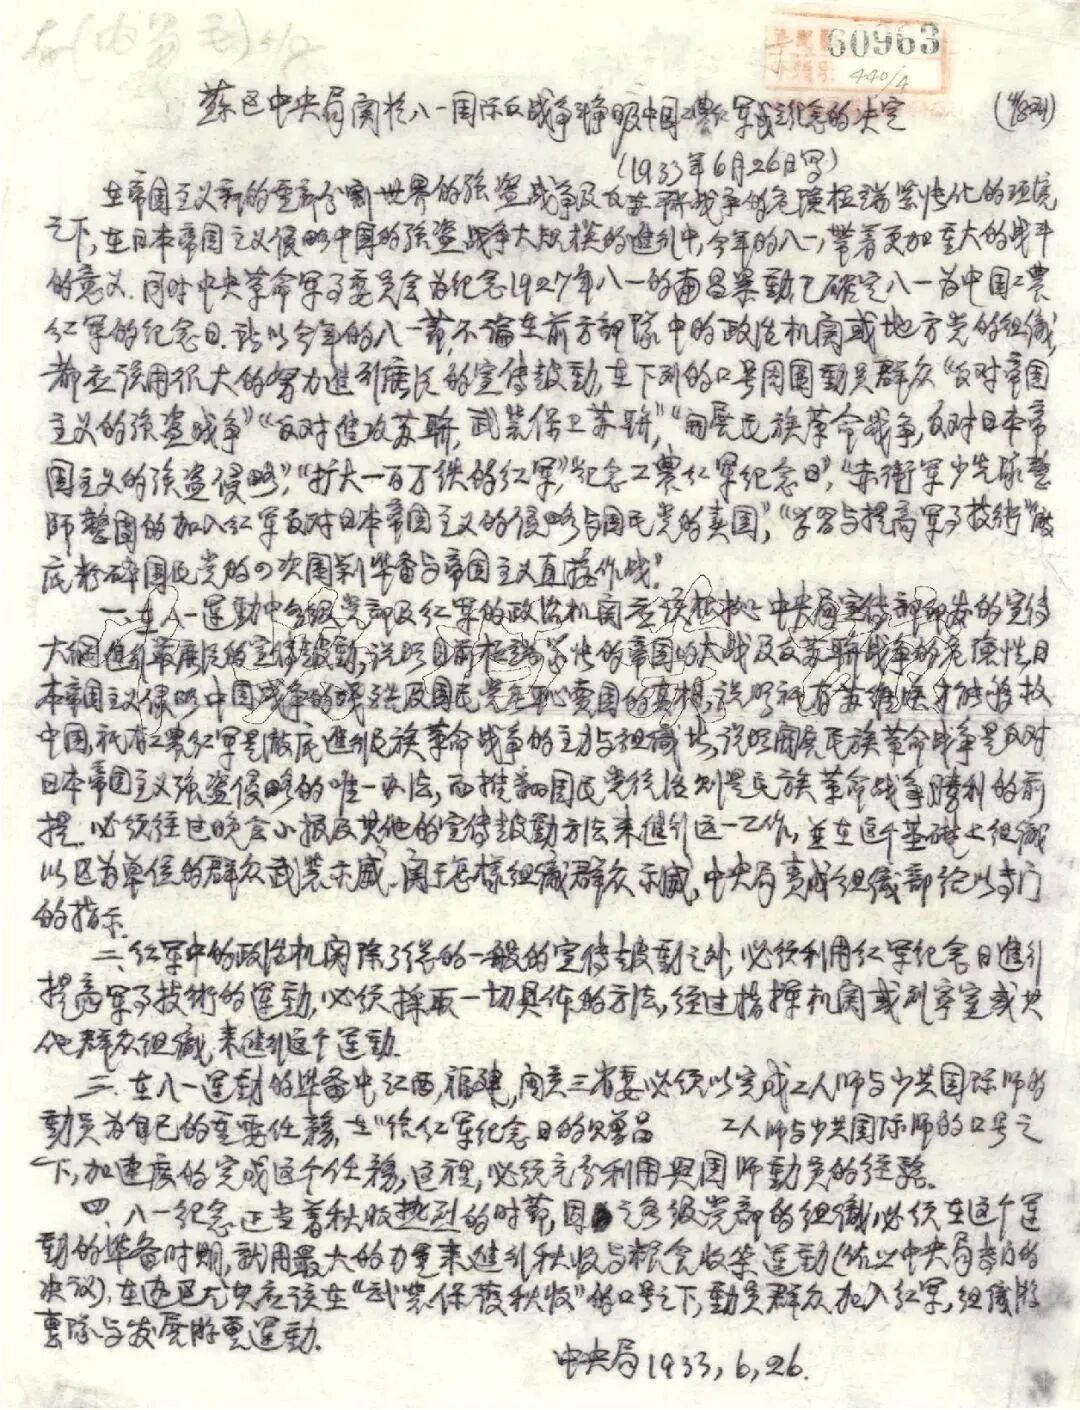 60963
440/4
苏区中央局关于八一国际反战争斗争日及中国工农红军成立纪念的决定
(1933年6月26日写)
在帝国主义新的重新分割世界的强盗战争及反苏联战争的危险极端紧张化的环境
之下,在日本帝国主义侵略中国的强盗战争大规模的进行中,今年的八一,带着更加重大的战斗
的意义.同时中央革命军事委员会为纪念1927年八一的南昌暴动已确定八一为中国工農
红军的纪念日.所以今年的八一节,不论在前方部队中的政治机关或地方党的组織,
都应该用很大的努力進行廣泛的宣传鼓動,在下列的口号周围動員群众“反对帝国
主义的强盗战争”“反对進攻苏联,武装保卫苏联”,“開展民族革命战争,反对日本帝
国主义的强盗侵略”,“扩大一百万铁的红军”,“纪念工農红军纪念日”,“赤衛军少先队整
师整团的加入红军反对日本帝国主义的侵略与国民党的卖国”,“学习与提高军事技術”“徹
底粉碎国民党的四次围剿準备与帝国主义直接作战”.
一.在八一運動中各级党部及红军的政治机关应该根据中央局宣传部印发的宣传
大綱進行最廣泛的宣传鼓動,说明目前极端紧张的帝国主义大战及反苏联战争的危险性,日
本帝国主义侵略中国战争的残酷及国民党无耻卖国的真相,说明祇有苏维埃才能够救
中国,祇有工農红军是徹底進行民族革命战争的主力与组織者,说明開展民族革命战争是反对
日本帝国主义强盗侵略的唯一办法,而推翻国民党统治则是民族革命战争勝利的前
提.必须经过晚会小报及其他的宣传鼓動方法来進行这一工作,並在这个基礎上组織
以区为单位的群众武装示威.関于怎樣组織群众示威,中央局责成组織部给以专门
的指示.
二.红军中的政治机関除了党的一般的宣传鼓動之外,必须利用红军纪念日進行
提高军事技術的運動,必须採取一切具体的方法,经过指挥机関或列寧室或其
他群众组織,来進行这个運動.
三.在八一運動的準备中江西,福建,闽赣三省委必须以完成工人师与少共国际师的
動员为自己的重要任務,在“给红军纪念日的赠品 工人师与少共国际师的口号之
下,加速度的完成这个任務,这裡,必须充分利用兴国师動员的经验.
四.八一纪念正当着秋收热烈的时节,因之各级党部的组織必须在这个運
動的準备时期,就用最大的力量来進行秋收与粮食收集運動(依以中央局专门的
决议),在边区尤其应该在“武装保護秋收”的口号之下,動员群众加入红军,组織游
击队与发展游击運動.
中央局1933,6,26.